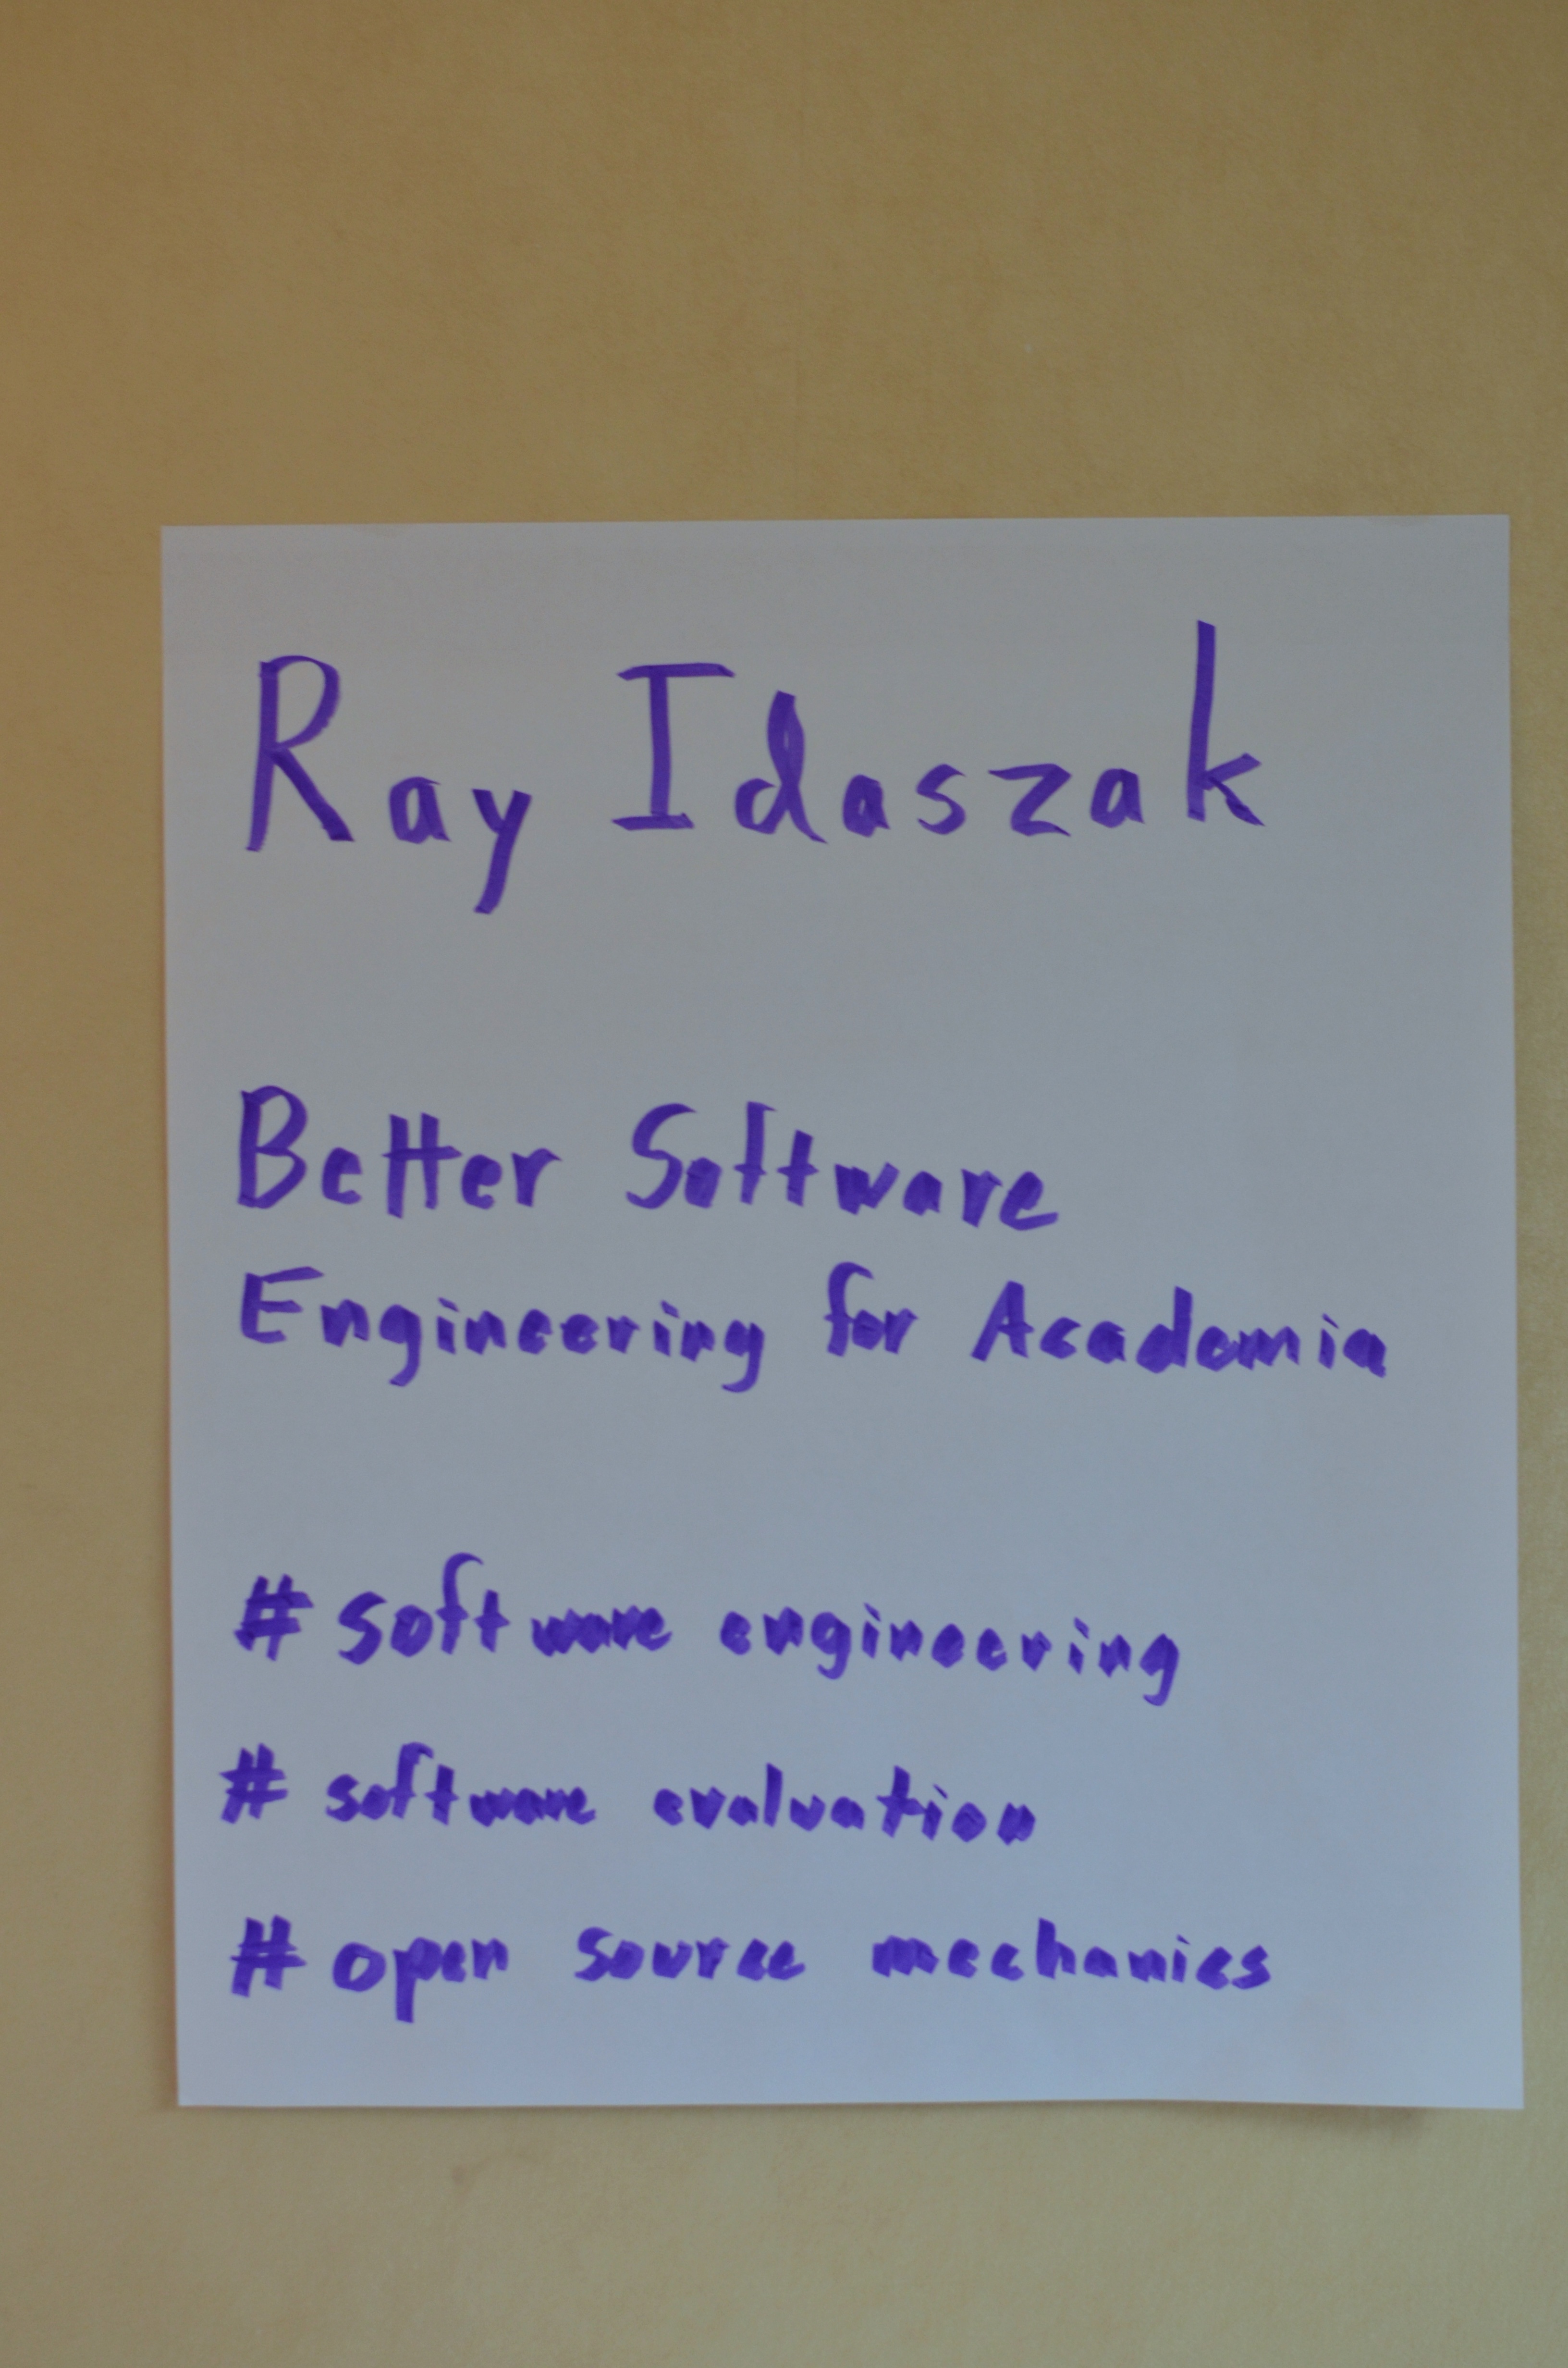 Ray Idaszak
Better Software
Engineering for Academia
# software engineering
# software evaluation
# open source mechanics